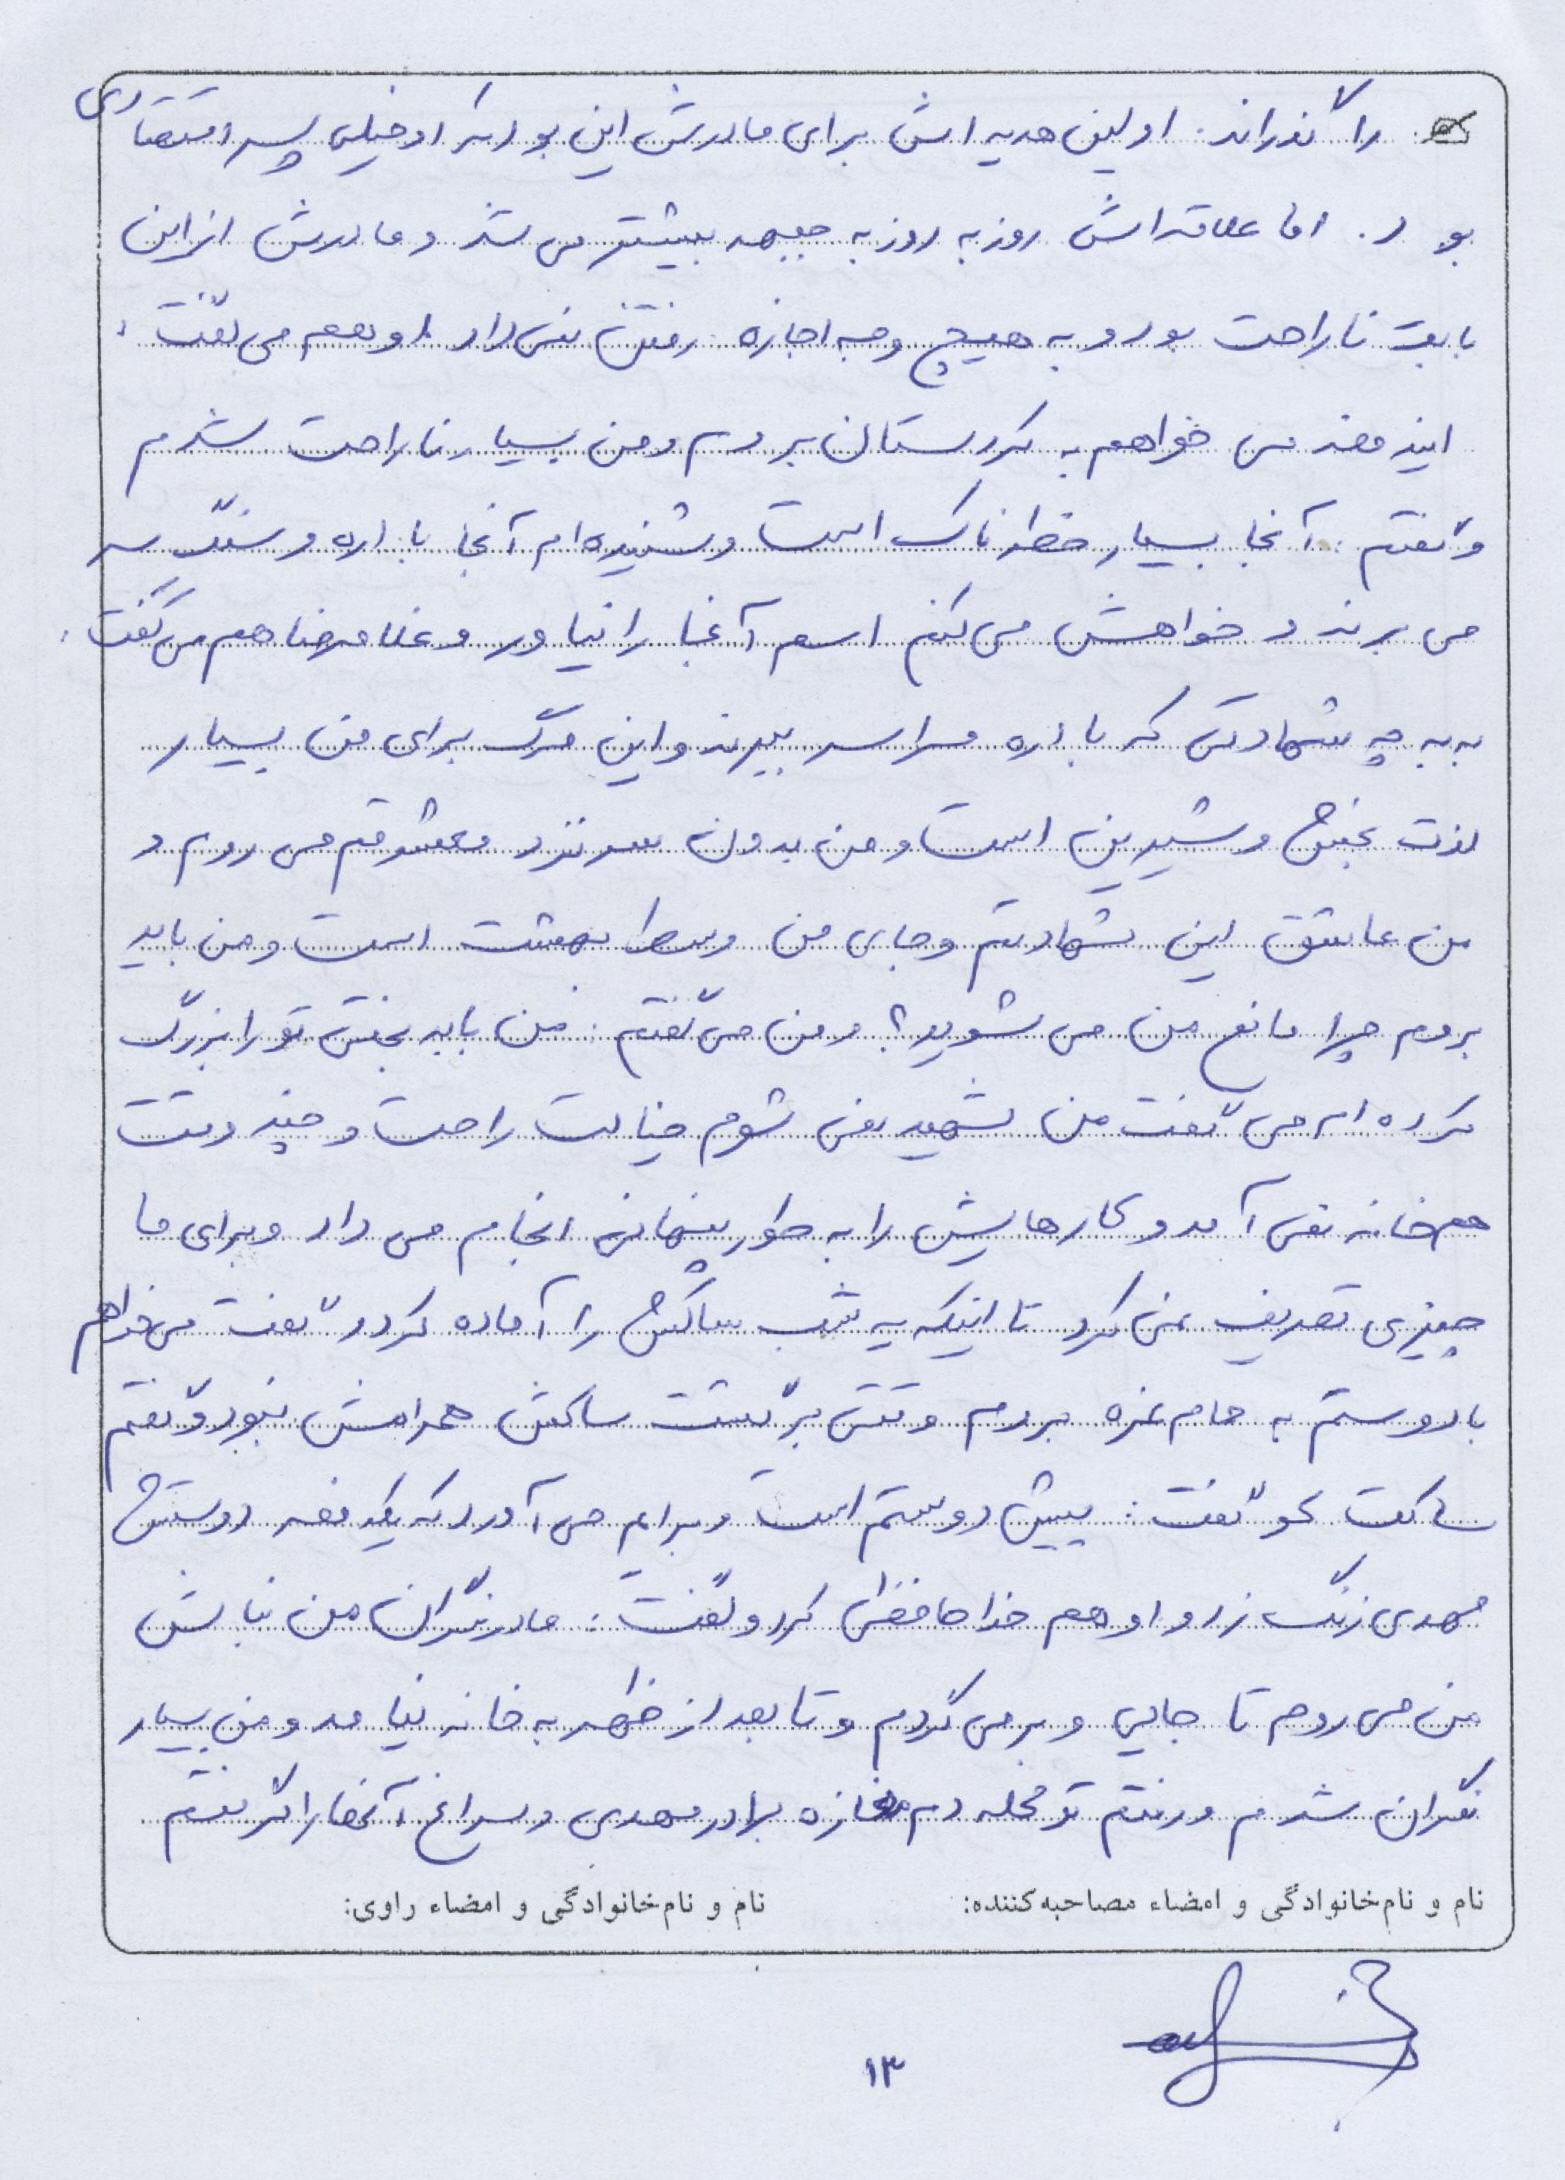 را گذراند. اولین هدیه اش برای مادرش این بود که او خیلی پسر اقتصادی
بود. اما علاقه اش روز به روز به جبهه بیشتر می شد و مادرش از این
بابت ناراحت بود و به هیچ وجه اجازه رفتن نمی داد. او هم می گفت:
ایندفعه می خواهم به کردستان بروم و من بسیار ناراحت شدم
و گفتم: آنجا بسیار خطرناک است و شنیده ام آنجا با اره و سنگ سر
می برند و خواهش می کنم اسم آنجا را نیاور و غلامرضا هم می گفت:
به به چه شهادتی که با اره مرا سر ببرند و این مرگ برای من بسیار
لذت بخش و شیرین است و من بدون سر نزد معشوقم می روم و
من عاشق این شهادتم و جای من وسط بهشت است و من باید
بروم چرا مانع من می شوید؟ و من می گفتم: من با بدبختی تو را بزرگ
کرده ام می گفت من شهید نمی شوم خیالت راحت و چند وقت
هم خانه نمی آمد و کارهایش را به طور پنهانی انجام می داد و برای ما
چیزی تعریف نمی کرد تا اینکه یه شب ساکش را آماده کرد و گفت می خواهم
با دوستم به حمام نمره بروم وقتی برگشت ساکش همراهش نبود و گفتم
ساکت کو گفت: پیش دوستم است و برایم می آورد که یکدفعه دوستش
مهدی زنگ زد و او هم خداحافظی کرد و گفت: مادر نگران من نباش
من می روم تا جایی و برمی گردم و تا بعد از ظهر به خانه نیامد و من بسیار
نگران شدم و رفتم تو محله دم مغازه برادر مهدی و سراغ آنها را گرفتم
نام و نام‌خانوادگی و امضاء مصاحبه‌کننده: نام و نام‌خانوادگی و امضاء راوی:
۱۳